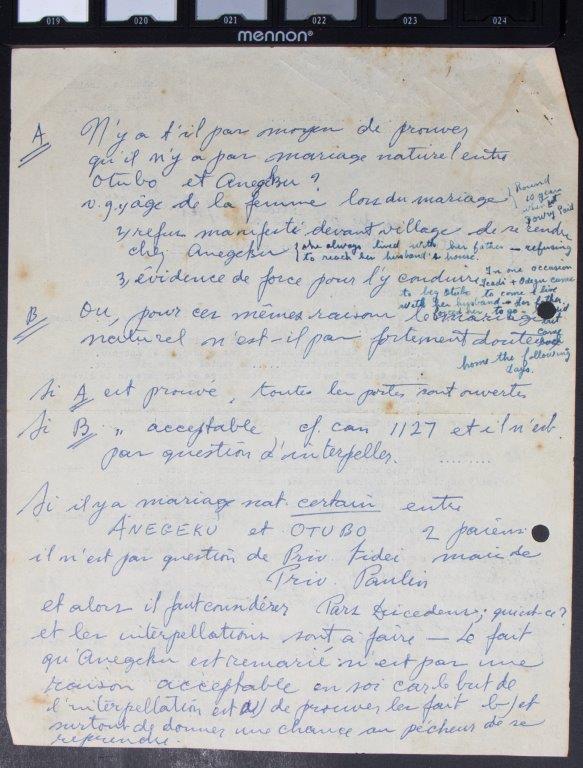 019 020 021 022 023 024
mennon®
A N'y a t'il pas moyen de prouver
qu'il n'y a pas mariage naturel entre
Otubo et Anegeku?
v.g. 1, âge de la femme lors du mariage
{ Round 10 years when dowry paid
2, refus manifesté devant village de se rendre
chez Anegeku { she always lived with her father – refusing
to reach her husband's house.
3, évidence de force pour l'y conduire
In one occasion
Teadi + Odegu came
to beg Otubo to come & live
with her husband – her father
forced her to go –
but came back
home the following
days.
B Ou, pour ces mêmes raisons le mariage
naturel n'est-il pas fortement douteux
Si A est prouvé, toutes les portes sont ouvertes
Si B " acceptable cf. can 1127 et il n'est
pas question d'interpeller.
Si il y a mariage nat. certain entre
ANEGEKU et OTUBO 2 païens
il n'est pas question de Priv. Fidei mais de
Priv. Paulin
et alors il faut considérer Pars Discedens; qui est-ce?
et les interpellations sont à faire – Le fait
qu'Anegeku est remarié n'est pas une
raison acceptable en soi car le but de
l'interpellation est a) de prouver les fait b) et
surtout de donner une chance au pécheur de se
reprendre.